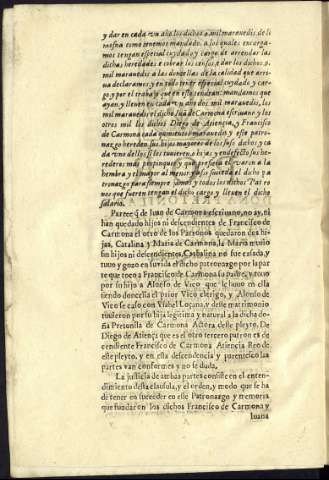 y dar en cada vn año los dichos 2. mil marauedis de li
mosna como tenemos mandado. a los quales encarga-
mos tengan especial cuydado y cargo de arrendar las
dichas heredades e cobrar los censos, e dar los dichos 2.
mil marauedis a las donzellas de la calidad que arri-
ua declaramos, y en todo tener especial cuydado y car-
go, y por el trabajo que en esto tendran: mandamos que
ayan, y lleuen en cada vn año dos mil marauedis, los
mil marauedis el dicho Iuã de Carmona escriuano, y los
otros mil los dichos Diego de Atiença, y Francisco
de Carmona cada quinientos marauedis y este patro-
nazgo hereden sus hijos mayores de los suso dichos y ca
da vno dellos si los tuuieren, o hija, y en defecto sus he-
rederos mas propinquos, y que prefiera el varon a la
hembra y el mayor al menor y assi suceda el dicho pa
tronazgo para siempre jamas, y todos los dichos Patro
nos que fueren tengan el dicho cargo y lleuen el dicho
salario.
Parece q̃ de Iuan de Carmona escriuano, no ay, ni
han quedado hijos ni descendientes de Francisco de
Carmona el otro de los Patronos quedaron dos hi-
jas, Catalina y Maria de Carmona, la Maria murio
sin hijos ni descendientes, Cathalina no fue casada, y
tuuo y gozo en su vida el dicho patronazgo por la par
te que toco a Francisco de Carmona su padre, y tuuo
por su hijo a Alonso de Vico que le huuo en ella
siendo donzella el prior Vico clerigo, y Alonso de
Vico se caso con Ysabel Loçano, y deste matrimonio
tuuieron por su hija legitima y natural a la dicha do-
ña Petronila de Carmona Actora deste pleyto. De
Diego de Atiença que es el otro tercero patron es de
cendiente Francisco de Carmona Atiença Reo de
este pleyto, y en esta descendencia y parentesco las
partes van conformes y no se duda.
La justicia de ambas partes consiste en el enten-
dimiento desta clausula, y el orden, y modo que se ha
de tener en suceder en este Patronazgo y memoria
que fundaron los dichos Francisco de Carmona y
Iuana